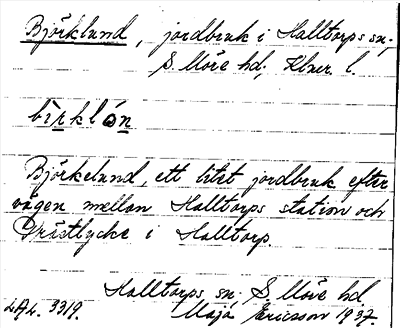 Björklund, jordbruk i Halltorps sn,
S. Möre hd, Klmr. l.
bìrklón
Björkelund, ett litet jordbruk efter
vägen mellan Halltorps station och
Prästlycke i Halltorp.
Halltorps sn. S. Möre hd.
LAL. 3319. Maja Ericsson 1937.